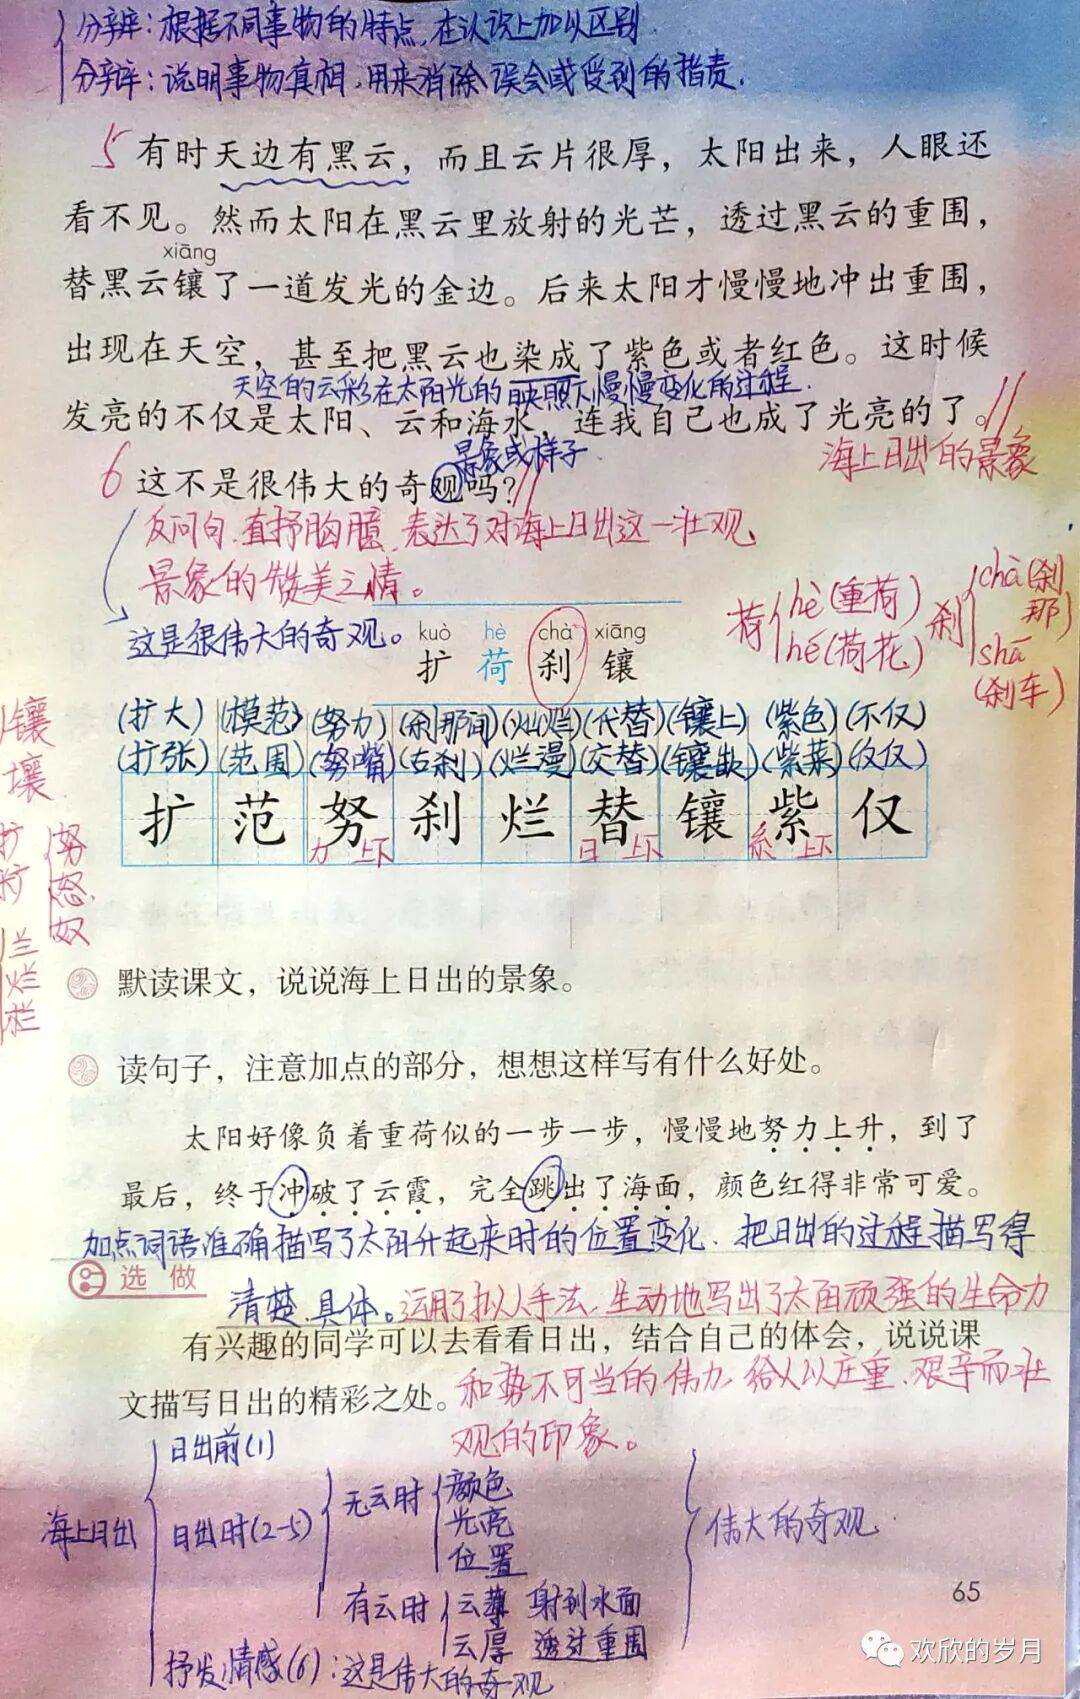 分辨：根据不同事物的特点，在认识上加以区别.
分辩：说明事物真相，用来消除误会或受到的指责.
5 有时天边有黑云，而且云片很厚，太阳出来，人眼还
看不见。然而太阳在黑云里放射的光芒，透过黑云的重围，
xiāng
替黑云镶了一道发光的金边。后来太阳才慢慢地冲出重围，
出现在天空，甚至把黑云也染成了紫色或者红色。这时候
天空的云彩在太阳光的映照下慢慢变化的过程.
发亮的不仅是太阳、云和海水，连我自己也成了光亮的了。//
景象或样子
海上日出的景象
6 这不是很伟大的奇观吗？//
反问句.直抒胸臆.表达了对海上日出这一壮观
景象的赞美之情。
这是很伟大的奇观。
kuò hè chà xiāng
扩 荷 刹 镶
荷 hè(重荷) hé(荷花)
刹 chà(刹那) shā(刹车)
(扩大)(模范)(努力)(刹那间)(灿烂)(代替)(镶上)(紫色)(不仅)
(扩张)(范围)(努嘴)(古刹)(烂漫)(交替)(镶嵌)(紫菜)(仅仅)
扩 范 努 刹 烂 替 镶 紫 仅
力 上下 日 上下 糸 上下
镶
壤
扩
旷
努
怒
奴
兰
烂
栏
默读课文，说说海上日出的景象。
读句子，注意加点的部分，想想这样写有什么好处。
太阳好像负着重荷似的一步一步，慢慢地努力上升，到了
最后，终于冲破了云霞，完全跳出了海面，颜色红得非常可爱。
加点词语准确描写了太阳升起来时的位置变化.把日出的过程描写得
选做
清楚.具体。运用了拟人手法.生动地写出了太阳顽强的生命力
有兴趣的同学可以去看看日出，结合自己的体会，说说课
文描写日出的精彩之处。
和势不可当的伟力.给人以庄重.艰辛而壮
观的印象。
海上日出
日出前(1)
日出时(2-5)
无云时
颜色
光亮
位置
有云时
云薄 射到水面
云厚 透过重围
抒发情感(6)：这是伟大的奇观
伟大的奇观
65
欢欣的岁月